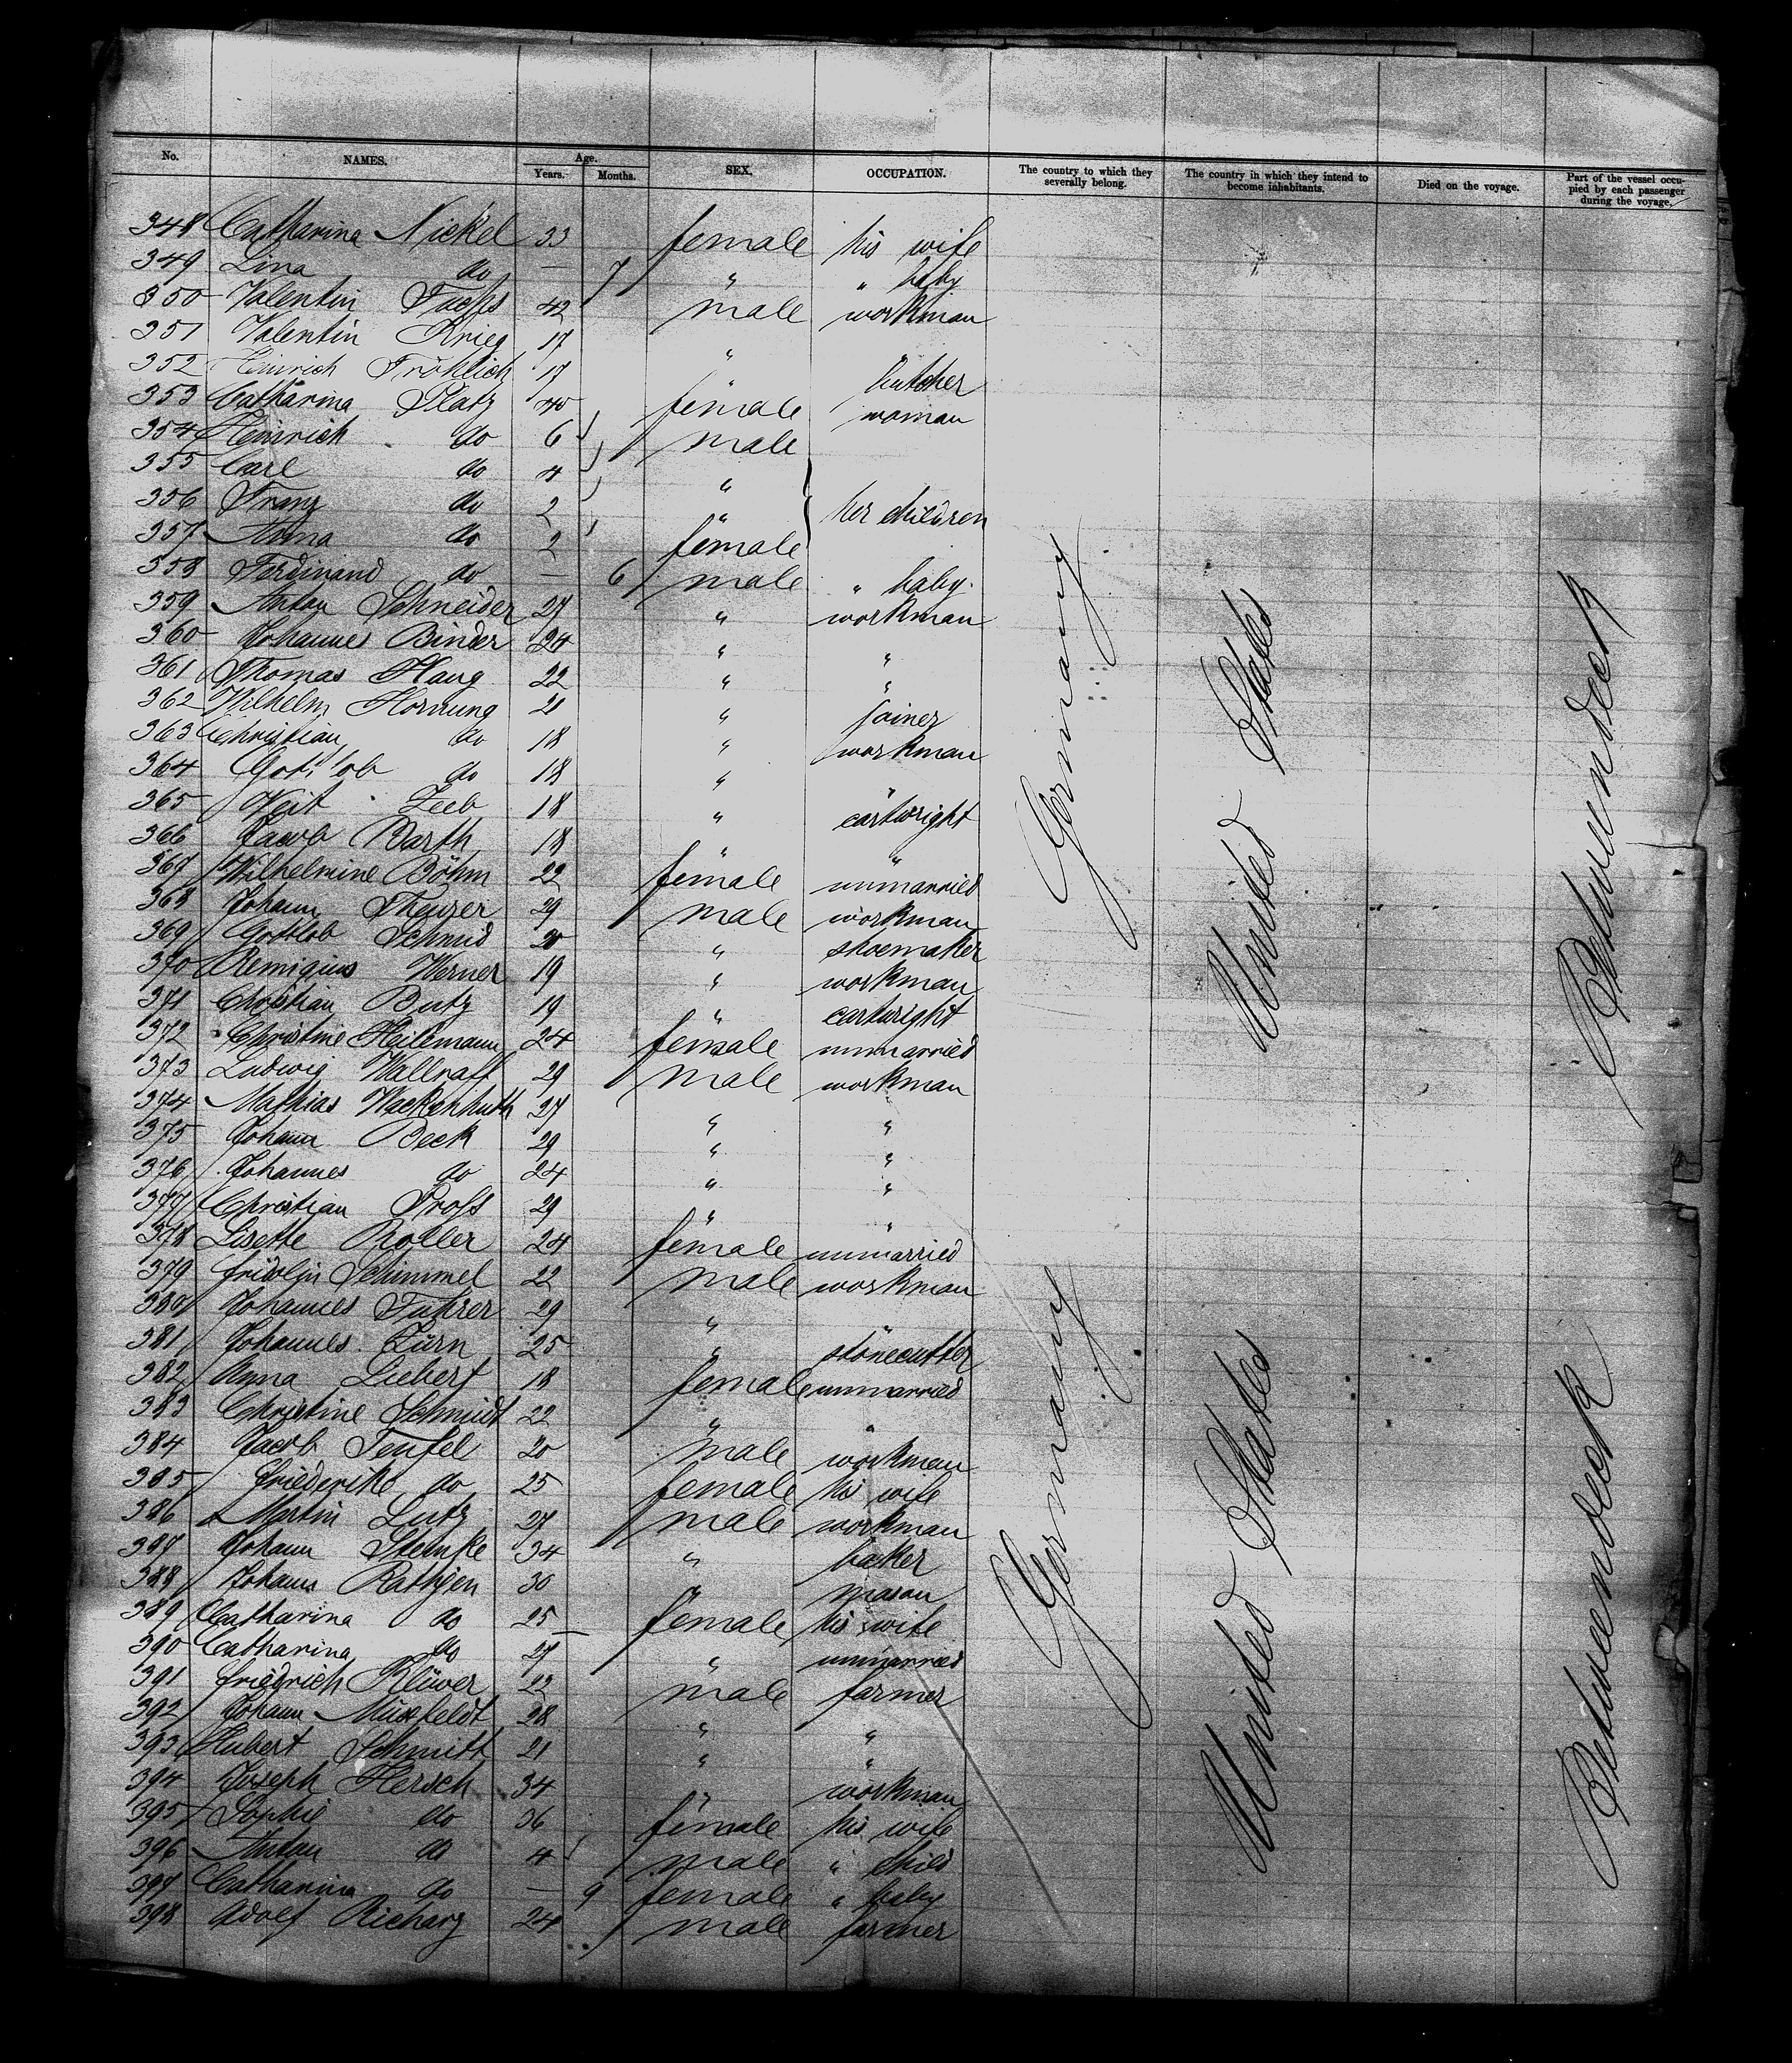 No. NAMES. Age. Years. Months. SEX. OCCUPATION. The country to which they severally belong. The country in which they intend to become inhabitants. Died on the voyage. Part of the vessel occupied by each passenger during the voyage.
348 Catharina Nickel 33 female his wife
349 Lina do — 7 " " baby
350 Valentin Fuchs 42 male workman
351 Valentin Krieg 17 "
352 Heinrich Fröhlich 17 " butcher
353 Catharina Platz 40 female woman
354 Heinrich do 6 male
355 Carl do 4 "
356 Franz do 2 " her children
357 Anna do 2 female
358 Ferdinand do — 6 male " baby
359 Anton Schneider 27 " workman
360 Johannes Binder 24 " "
361 Thomas Haug 22 " "
362 Wilhelm Hornung 21 " joiner
363 Christian do 18 " workman
364 Gottlob do 18 " "
365 Veit Zeeb 18 " cartwright
366 Jacob Barth 18 " "
367 Wilhelmine Böhm 22 female unmarried
368 Johann 29 male workman
369 Gottlob Schmid 20 " shoemaker
370 Remigius Werner 19 " workman
371 Christian Butz 19 " cartwright
372 Christine Heilemann 24 female unmarried
373 Ludwig Wallraff 29 male workman
374 Mathias Wackenhuth 27 " "
375 Johann Beck 29 " "
376 Johannes do 24 " "
377 Christian Pross 29 " "
378 Lisette Roller 24 female unmarried
379 Fridolin Schimmel 22 male workman
380 Johannes Führer 29 " "
381 Johannes Zürn 25 " stonecutter
382 Anna Liebert 18 female unmarried
383 Christine Schmidt 22 " "
384 Jacob Teufel 20 male workman
385 Friederike do 25 female his wife
386 Martin Lutz 27 male workman
387 Johann Stemke 34 " baker
388 Johann Rathjen 30 " mason
389 Catharina do 25 female his wife
390 Catharina do 27 " unmarried
391 Friedrich Klüver 22 male farmer
392 Johann Muxfeldt 28 " "
393 Hubert Schmitt 21 " "
394 Joseph Hersch 34 " workman
395 Sophie do 36 female his wife
396 Anton do 4 male " child
397 Catharina do — 9 female " baby
398 Adolf Richarz 24 male farmer
Germany
United States
Betweendeck
Germany
United States
Betweendeck